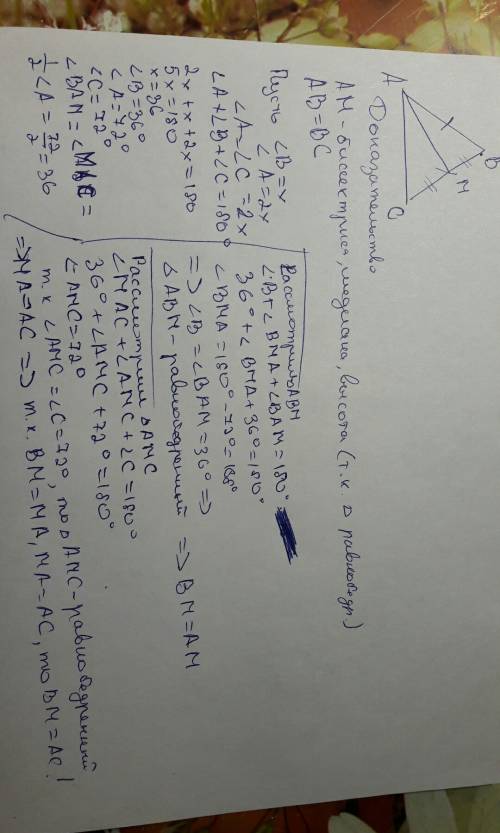 B
M
A
C
Доказательство
AM - биссектриса, медиана, высота (т.к. △ равнобедр)
AB=BC
Пусть ∠B=x
∠A=2x
∠A=∠C=2x
∠A+∠B+∠C=180°
2x+x+2x=180
5x=180
x=36
∠B=36°
∠A=72°
∠C=72°
∠BAM=∠MAC=
1/2∠A=72/2=36
Рассмотрим △ABM
∠B+∠BMA+∠BAM=180°
36°+∠BMA+36°=180°
∠BMA=180°-72°=108°
=> ∠B=∠BAM=36° =>
△ABM-равнобедренный => BM=AM
Рассмотрим △AMC
∠MAC+∠AMC+∠C=180°
36°+∠AMC+72°=180°
∠AMC=72°
т.к ∠AMC=∠C=72°, то △AMC-равнобедренный
=>MA=AC => т.к. BM=MA, MA=AC, то BM=AC!